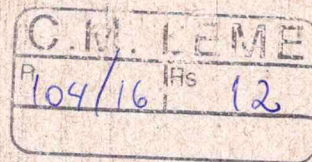 C.M. LEME
P 104/16 Fls 12